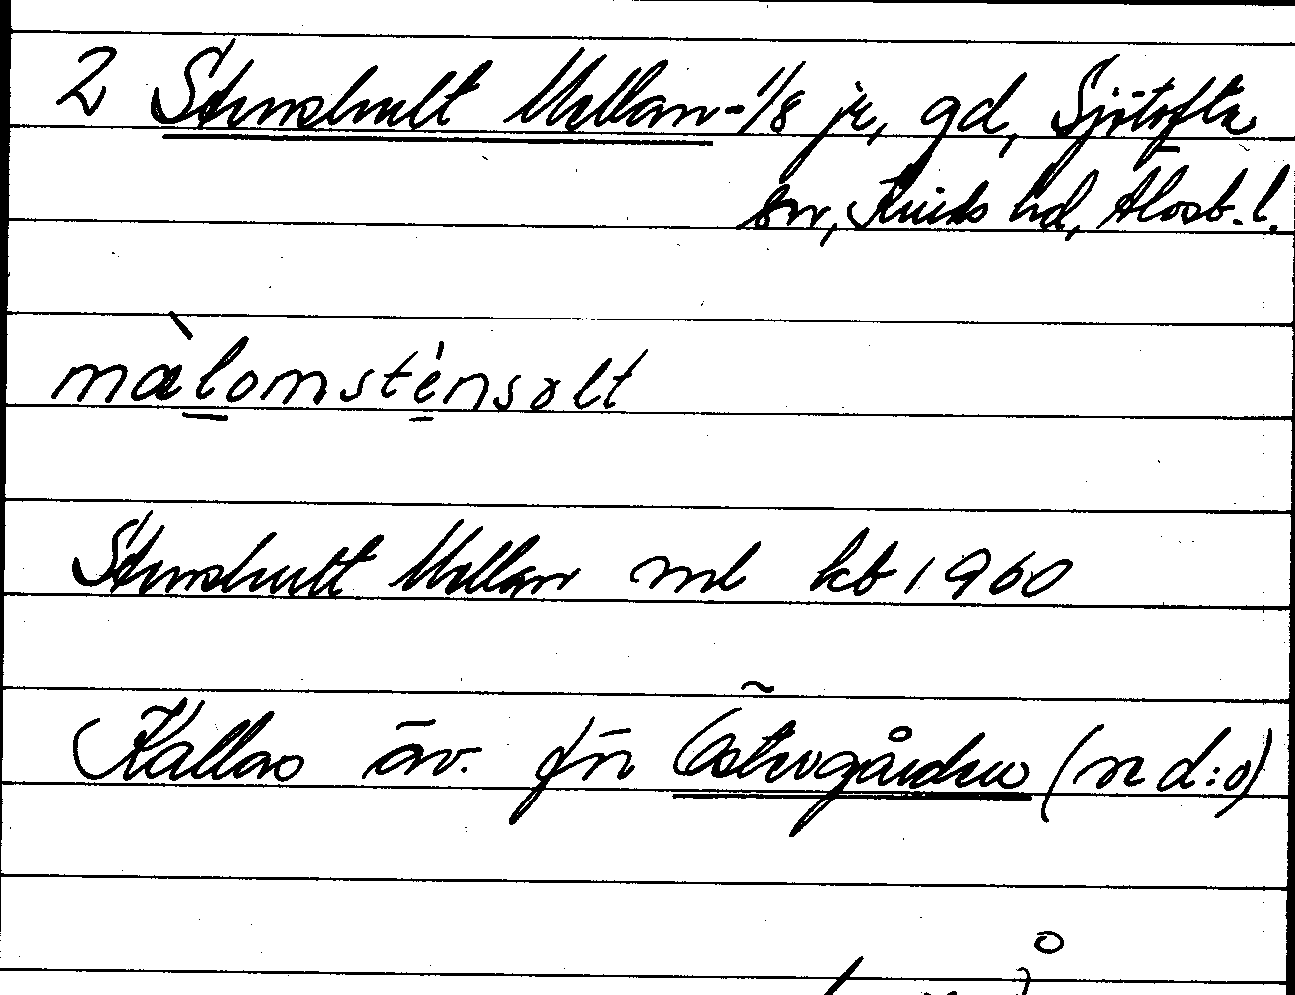 2 Stenshult Mellan - 1/8 jr, gd, Sjötofta
sn, Kinds hd, Älvsb. l.
mæ̀lomsténsolt
Stenshult Mellan ml kb 1960
Kallas äv. för Östergården (n d:o)